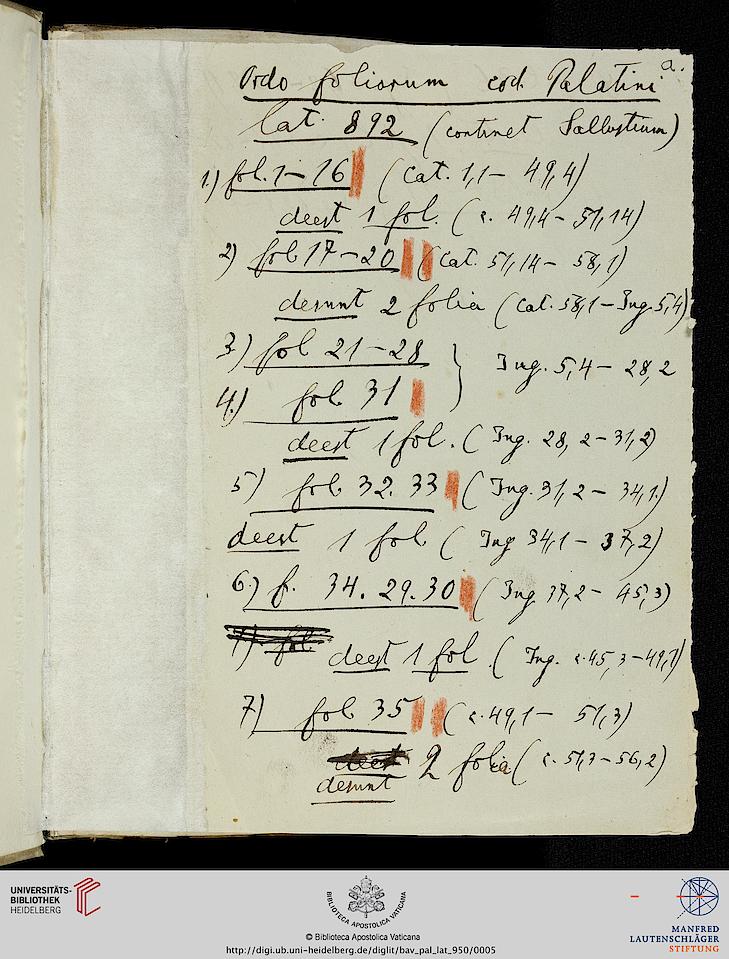 a.
Ordo foliorum cod. Palatini
lat. 892 (continet Sallustium)
1.) fol. 1 – 16 (Cat. 1,1 – 49,4)
deest 1 fol. (c. 49,4 – 51,14)
2) fol 17 – 20 (Cat. 51,14 – 58,1)
desunt 2 folia (Cat. 58,1 – Jug. 5,4)
3.) fol 21 – 28 } Jug. 5,4 – 28,2
4.) fol 31
deest 1 fol. (Jug. 28, 2 – 31,2)
5) fol 32. 33 (Jug. 31,2 – 34,1.)
deest 1 fol (Jug 34,1 – 37,2)
6.) f. 34. 29. 30 (Jug 37,2 – 45,3)
7) fol deest 1 fol. (Jug. c. 45, 3 – 49,1)
7) fol 35 (c. 49,1 – 51,3)
deest 2 folia (c. 51,3 – 56,2)
desunt
UNIVERSITÄTS-
BIBLIOTHEK
HEIDELBERG
BIBLIOTECA APOSTOLICA VATICANA
© Biblioteca Apostolica Vaticana
http://digi.ub.uni-heidelberg.de/diglit/bav_pal_lat_950/0005
MANFRED
LAUTENSCHLÄGER
STIFTUNG